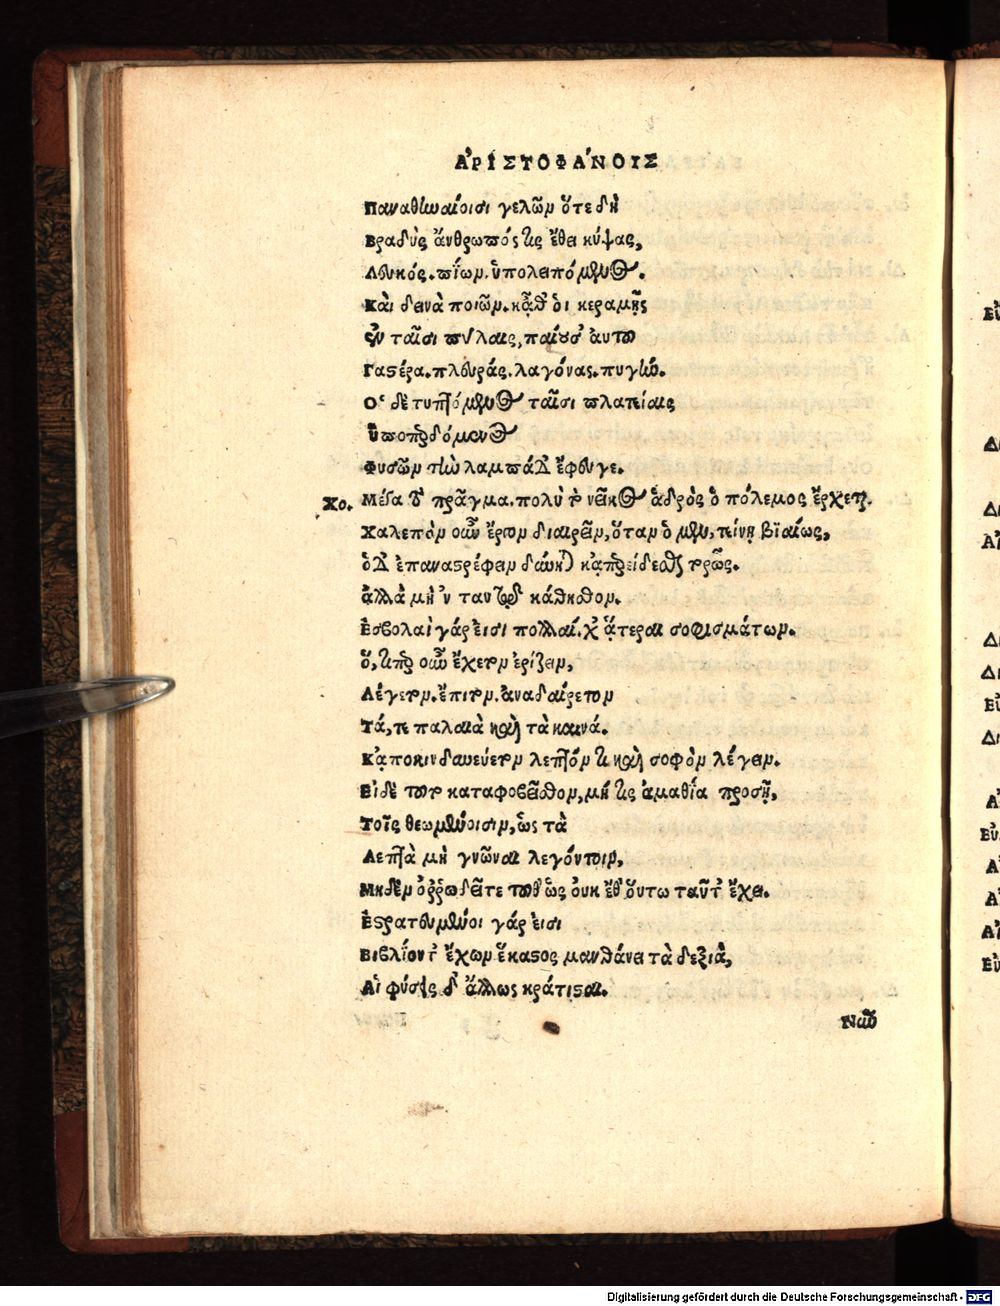 ἈΡΙΣΤΟΦΆΝΟΥΣ
Παναθηναίοισι γελῶν ὅτε δὴ
Βραδὺς ἄνθρωπός τις ἔθει κύψας,
Λευκός. πίων. ὑπολειπόμενος.
Καὶ δεινὰ ποιῶν. κᾆθ' ὁι κεραμῆς
ἐν ταῖσι πύλαις, παίουσ' ἀυτοῦ
Γαστέρα. πλευράς. λαγόνας. πυγήν.
Ὁ δὲ τυπτόμενος ταῖσι πλατείαις
Ὑποπερδόμενος
Φυσῶν τὴν λαμπάδ' ἔφευγε.
Χο. Μέγα τὸ πρᾶγμα. πολὺ τὸ νεῖκος ἁδρὸς ὁ πόλεμος ἔρχεται.
Χαλεπὸν οὖν ἔργον διαιρεῖν, ὅταν ὁ μὲν, τείνῃ βϊαίως,
ὁ δ' ἐπαναστρέφειν δύνηται κἀπερείδεσθαι τορῶς.
ἀλλὰ μὴ 'ν ταυτῷ κάθησθον.
Ἐσβολαὶ γάρ ἐισι πολλαί. χἄτεραι σοφισμάτων.
ὅ,τιπερ οὖν ἔχετον ἐρίζειν,
Λέγετον. ἔπιτον. ἀναδαίρετον
Τά,τε παλαιὰ καὶ τὰ καινά.
Κἀποκινδυνεύετον λεπτόν τι καὶ σοφὸν λέγειν.
Εἰ δὲ τοῦτο καταφοβεῖσθον, μή τις ἀμαθία προσῇ,
Τοῖς θεωμένοισιν, ὡς τὰ
Λεπτὰ μὴ γνῶναι λεγόντοιν,
Μηδὲν ὀῤῥωδεῖτε τοῦθ' ὡς ὀυκ ἔθ' ὅυτω ταῦτ' ἔχει.
Ἐστρατευμένοι γάρ ἐισι
Βιβλίοντ' ἔχων ἕκαστος μανθάνει τὰ δεξιά,
Ἁι φύσεις δ' ἄλλως κράτισται.
Νῦν
Εὐ
Δι
Δι
Αἰ
Δι
Δι
Εὐ
Δι
Αἰ
Εὐ.
Αἰ
Αἰ
Αἰ
Εὐ
Digitalisierung gefördert durch die Deutsche Forschungsgemeinschaft - DFG